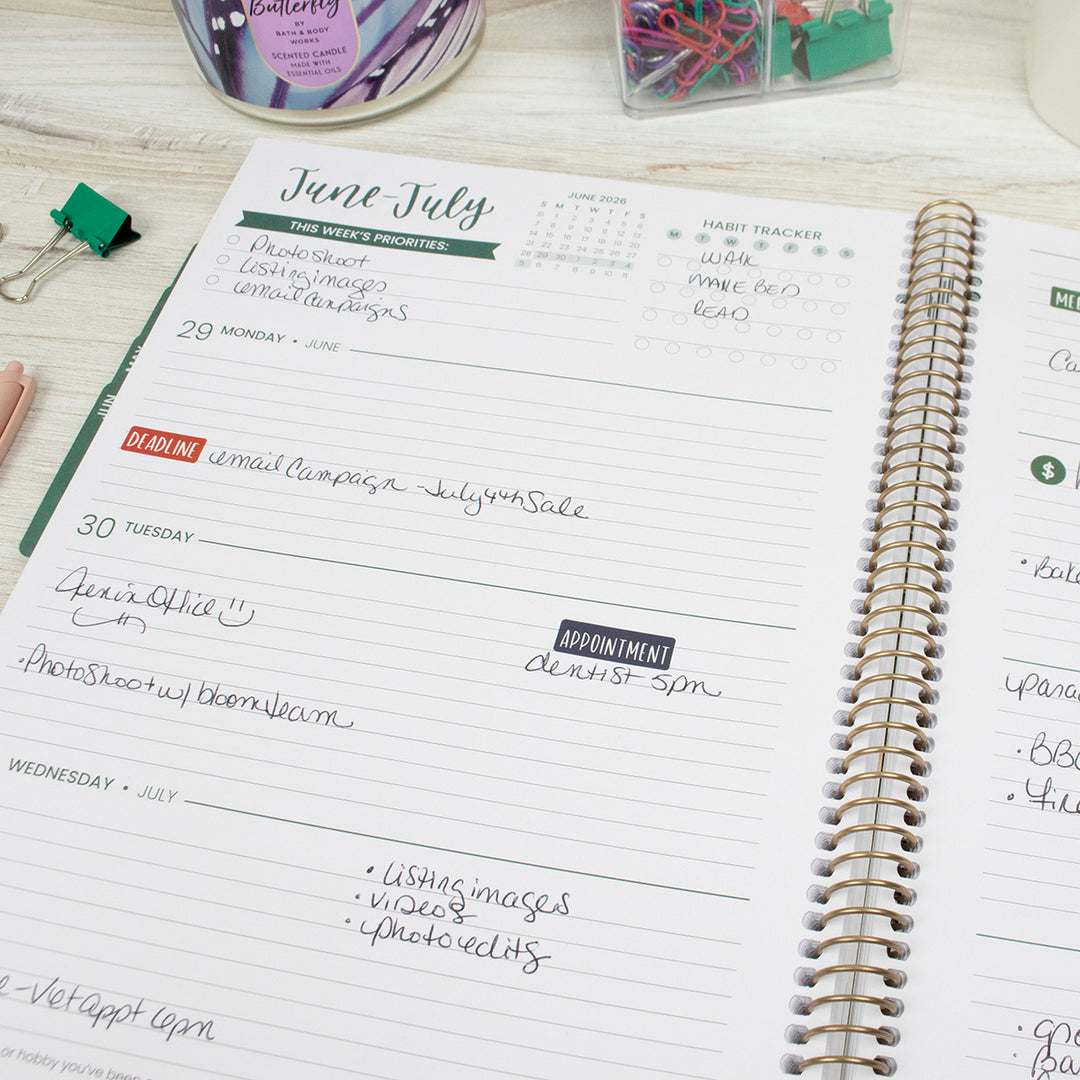 Butterfly
BY
BATH & BODY
WORKS
SCENTED CANDLE
MADE WITH
ESSENTIAL OILS
June-July
THIS WEEK'S PRIORITIES:
Photoshoot
Listing images
email Campaigns
JUNE 2026
S M T W T F S
31 1 2 3 4 5 6
7 8 9 10 11 12 13
14 15 16 17 18 19 20
21 22 23 24 25 26 27
28 29 30 1 2 3 4
5 6 7 8 9 10 11
HABIT TRACKER
M T W T F S S
WALK
MAKE BED
READ
MAY
JUN
29 MONDAY • JUNE
DEADLINE email Campaign - July 4th Sale
30 TUESDAY
in Office
APPOINTMENT
dentist 5pm
• Photoshoot w/ bloom team
WEDNESDAY • JULY
• Listing images
• videos
• photo edits
- Vet appt 6pm
or hobby you've been
$
• Bake
• BB